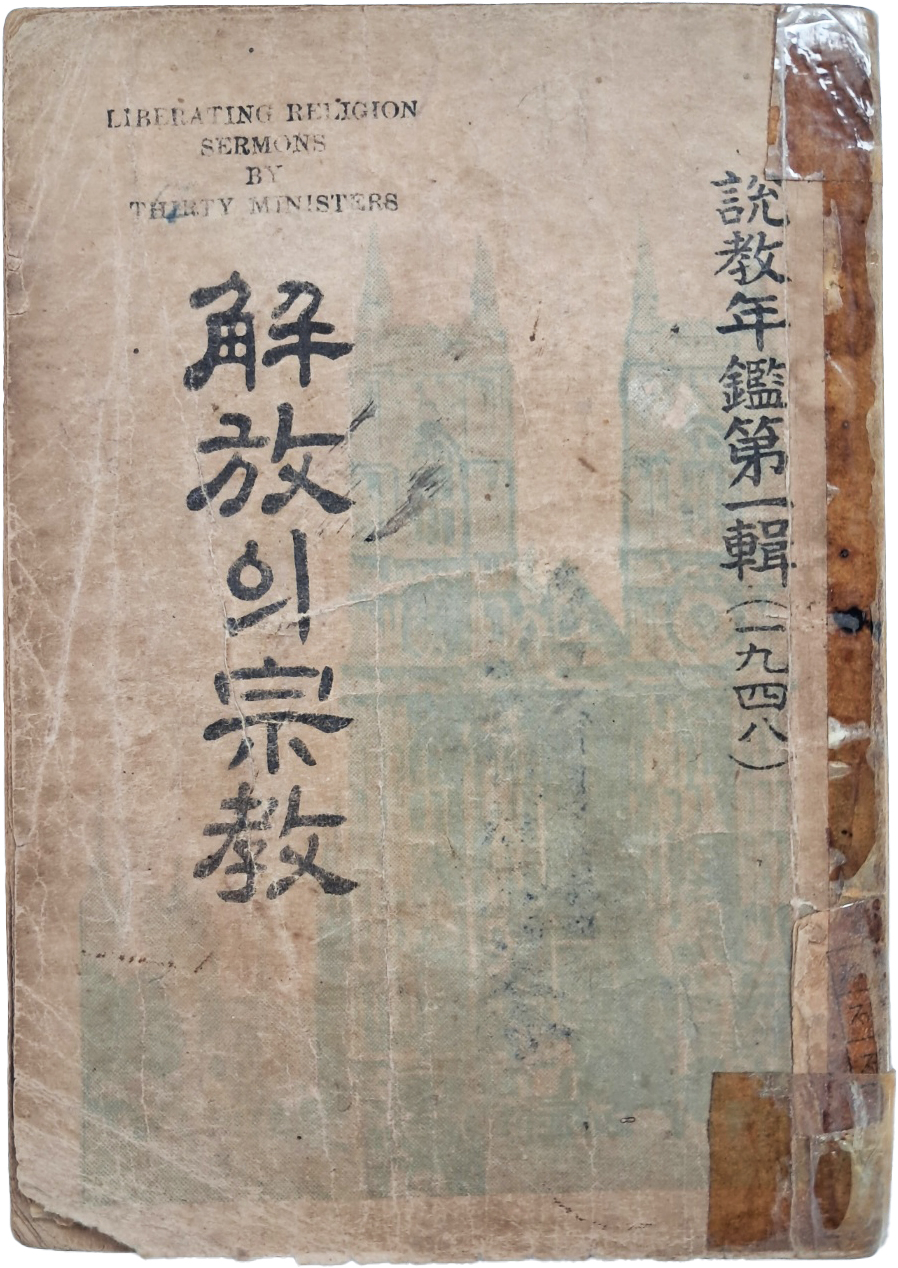 LIBERATING RELIGION
SERMONS
BY
THIRTY MINISTERS
說教年鑑第一輯(一九四八)
解放의宗敎